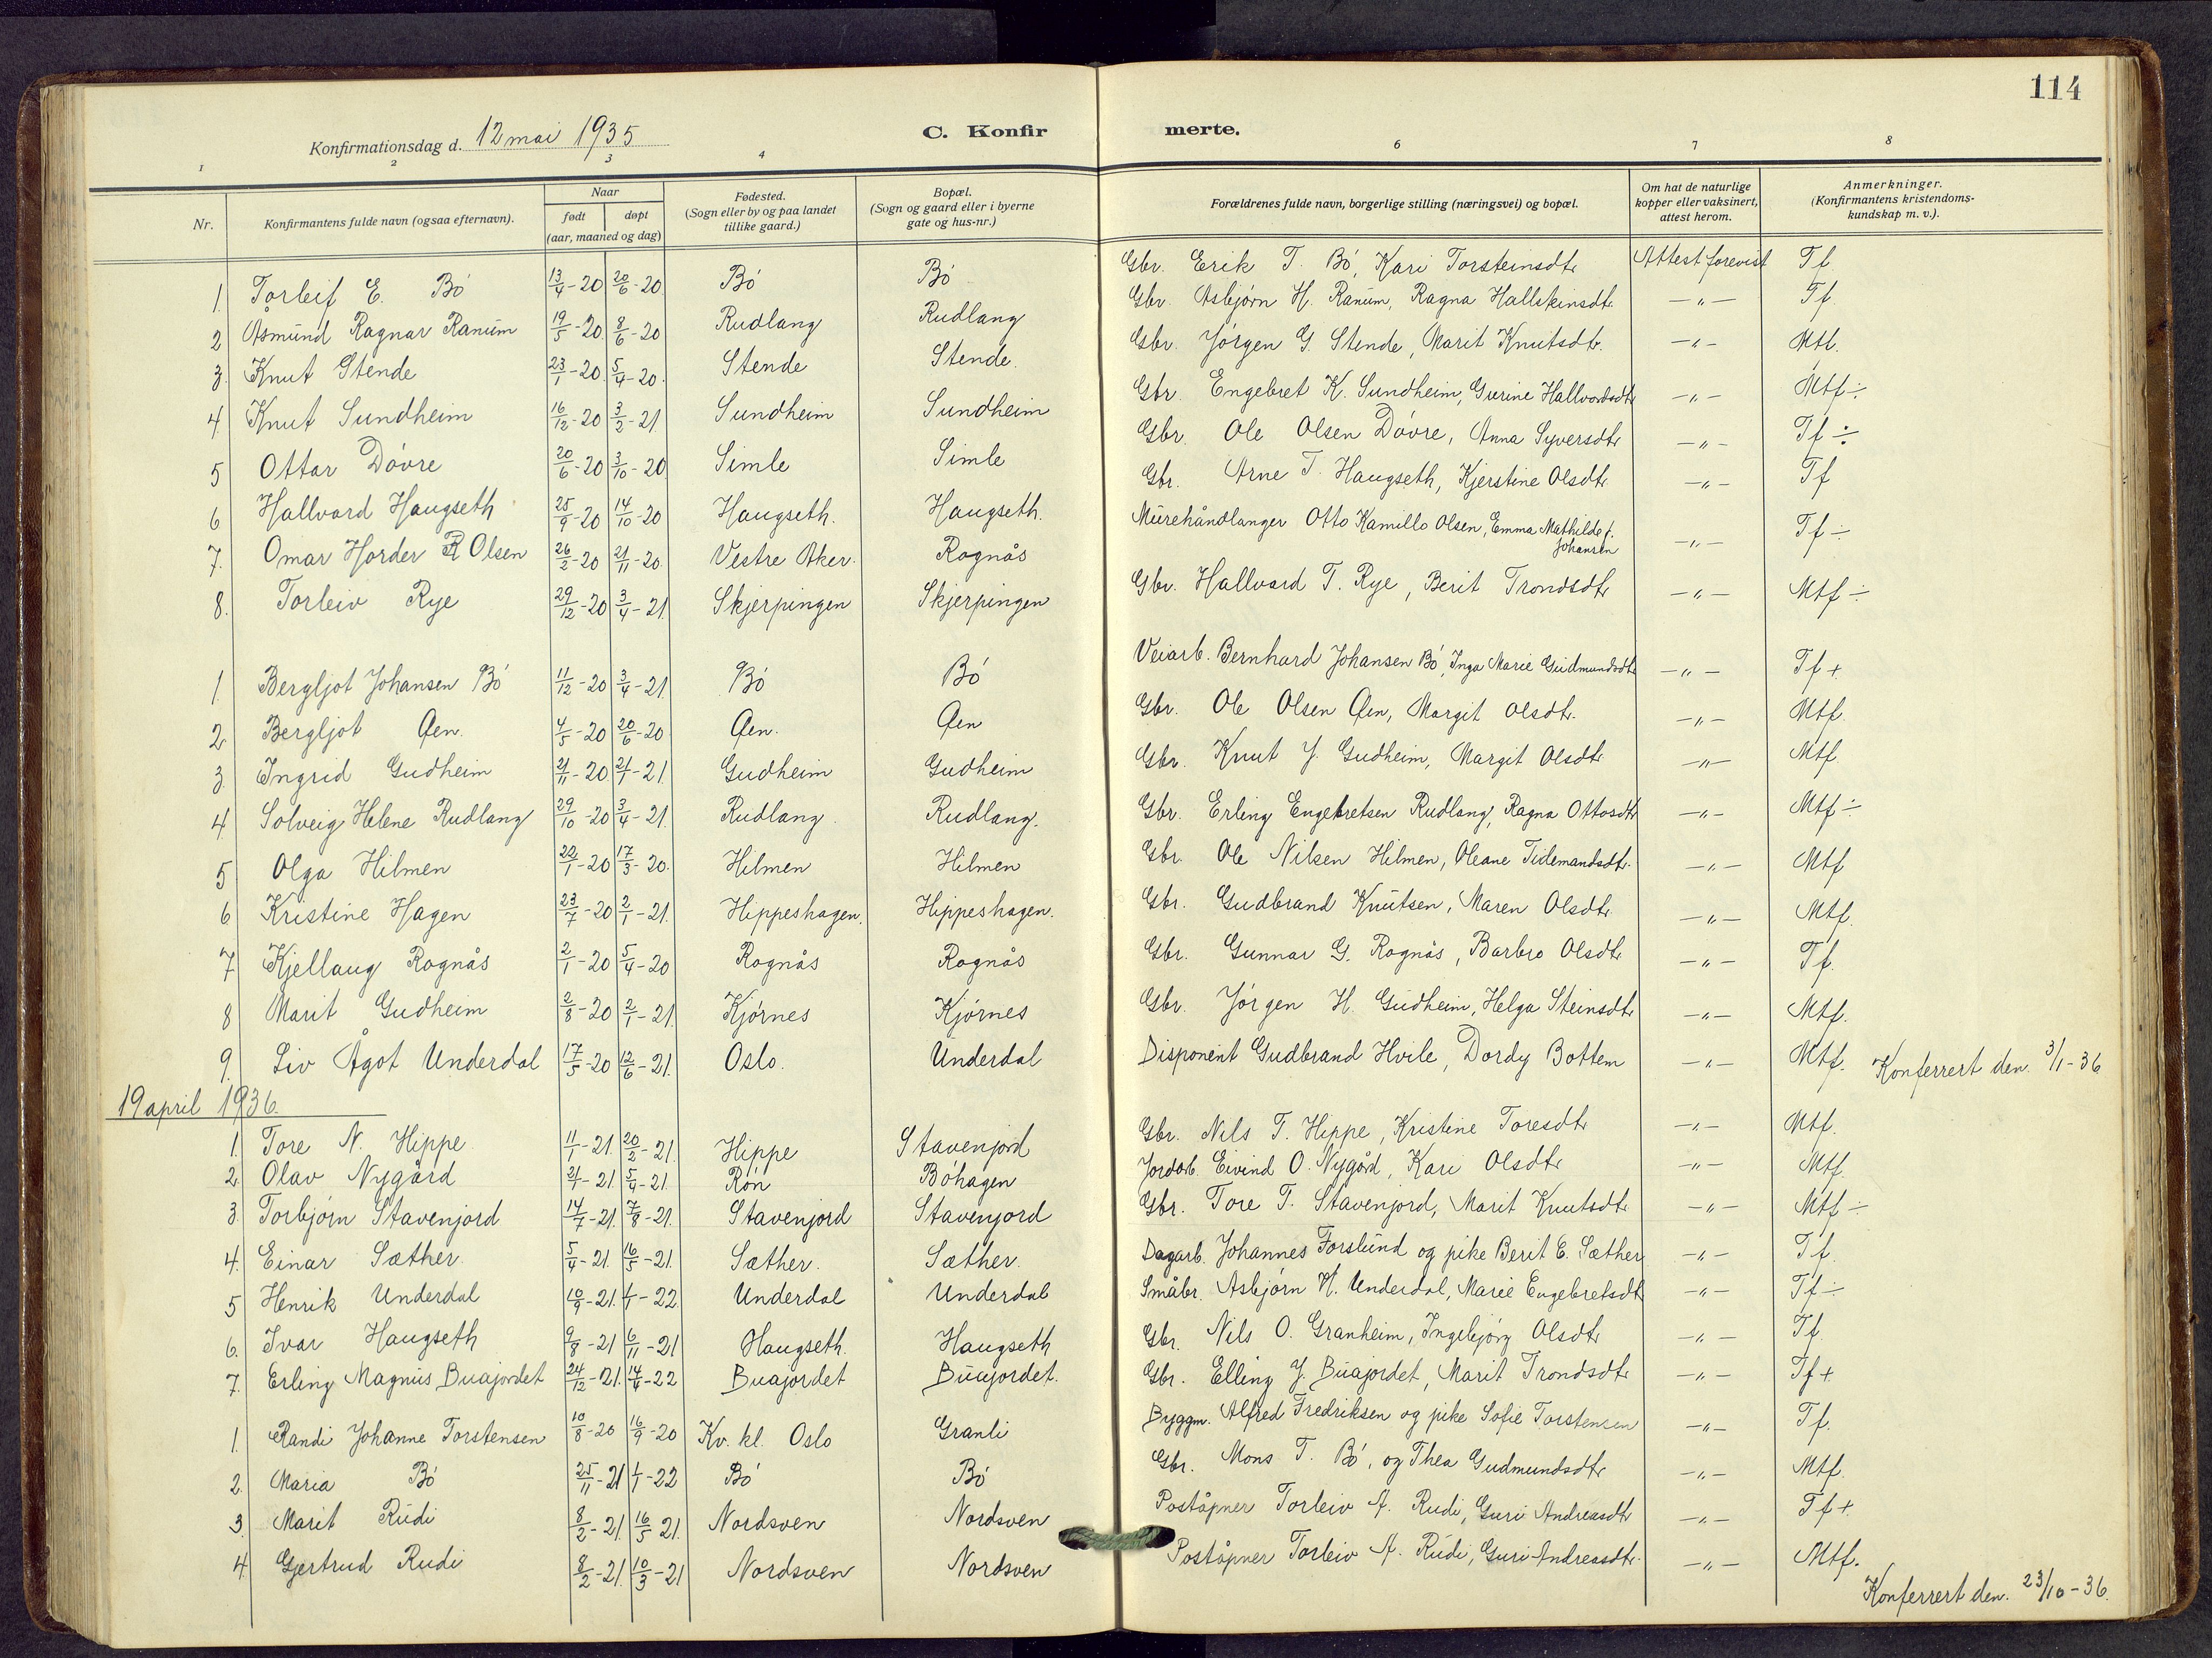 114
Konfirmationsdag d. 12 mai 1935
C. Konfir merte.
1 2 3 4 6 7 8
Nr. Konfirmantens fulde navn (ogsaa efternavn). Naar født døpt (aar, maaned og dag) Fødested. (Sogn eller by og paa landet tillike gaard.) Bopæl. (Sogn og gaard eller i byerne gate og hus-nr.) Forældrenes fulde navn, borgerlige stilling (næringsvei) og bopæl. Om hat de naturlige kopper eller vaksinert, attest herom. Anmerkninger. (Konfirmantens kristendoms- kundskap m. v.).
1 Torleif E. Bö 13/4-20 20/6-20 Bö Bö Gbr. Erik T. Bö, Kari Torsteinsdtr Attest forevist Tf
2 Åsmund Ragnar Ranum 19/5-20 8/6-20 Rudlang Rudlang Gbr. Asbjørn H. Ranum, Ragna Hallskinsdtr. -"- Tf.
3. Knut Stende 23/1-20 5/4-20. Stende Stende. Gbr. Jörgen G. Stende, Marit Knutsdtr. -"- Mtf.
4. Knut Sundheim 16/12-20 3/2-21 Sundheim Sundheim Gbr. Engebret K. Sundheim, Gurine Hallvordsdtr -"- Mtf÷
5 Ottar Dövre 20/6-20 3/10-20 Simle Simle Gbr. Ole Olsen Dövre, Anna Syversdtr -"- Tf÷
6 Hallvard Haugseth 25/9-20 14/10-20 Haugseth. Haugseth. Gbr. Arne T. Haugseth, Kjerstine Olsdtr -"- Tf
7. Omar Horder R Olsen 26/2-20 21/11-20. Vestre Aker. Rognås Murehåndlanger Otto Kamillo Olsen, Emma Mathilde f. Johansen -"- Tf÷
8. Torleiv Rye 29/12-20 3/4-21. Skjerpingen Skjerpingen Gbr. Hallvard T. Rye, Berit Trondsdtr -"- Mtf÷
1. Bergljot Johansen Bö 11/12-20 3/4-21 Bö Bö Veiarb. Bernhard Johansen Bö, Inga Marie Gudmundsdtr -"- Tf+
2. Bergljot Øen. 4/5-20 20/6-20 Øen. Øen Gbr. Ole Olsen Øen, Margit Olsdtr. -"- Mtf.
3. Ingrid Gudheim 21/11-20 21/1-21 Gudheim Gudheim Gbr. Knut J. Gudheim, Margit Olsdtr -"- Mtf
4. Solveig Helene Rudlang 29/10-20 3/4-21. Rudlang. Rudlang. Gbr. Erling Engebretsen Rudlang, Ragna Ottosdtr -"- Mtf÷
5 Olga Hilmen 22/1-20 17/3-20. Hilmen Hilmen Gbr. Ole Nilsen Hilmen, Oleane Tidemandsdtr. -"- Mtf
6 Kristine Hagen 23/7-20 2/1-21. Hippeshagen. Hippeshagen. Gbr. Gudbrand Knutsen, Maren Olsdtr. -"- Mtf.
7 Kjellaug Rognås 2/1-20 5/4-20 Rognås Rognås Gbr. Gunnar G. Rognås, Barbro Olsdtr -"- Tf.
8 Marit Gudheim 2/8-20 2/1-21. Kjörnes Kjörnes Gbr. Jörgen H. Gudheim, Helga Steinsdtr -"- Mtf.
9. Liv Ågot Underdal 17/5-20 12/6-21. Oslo. Underdal Disponent Gudbrand Hvile, Dordy Bottem -"- Mtf. Konferrert den. 3/1-36
19 april 1936.
1. Tore N. Hippe. 11/1-21. 20/2-21. Hippe Stavenjord Gbr. Nils T. Hippe, Kristine Toresdtr -"- Mtf.
2. Olav Nygård 21/1-21. 5/4-21. Røn Böhagen Jordarb. Eivind O. Nygård, Kari Olsdtr -"- Mtf.
3. Torbjörn Stavenjord 14/7-21. 7/8-21. Stavenjord Stavenjord Gbr. Tore T. Stavenjord, Marit Knutsdtr -"- Mtf÷
4. Einar Sæther. 5/4-21. 16/5-21. Sæther. Sæther. Dagarb. Johannes Forslund og pike Berit E. Sæther -"- Tf.
5 Henrik Underdal 10/9-21. 1/1-22 Underdal Underdal Småbr. Asbjørn H. Underdal, Marie Engebretsdtr -"- Tf÷
6. Ivar Haugseth 9/8-21 6/11-21 Haugseth. Haugseth Gbr. Nils O. Granheim, Ingebjörg Olsdtr -"- Tf.
7. Erling Magnus Buajordet 24/12-21. 14/4-22 Buajordet Buajordet. Gbr. Elling J. Buajordet, Marit Trondsdtr -"- Tf+
1. Randi Johanne Torstensen 10/8-20 16/9-20 Kv. kl. Oslo Granli Byggm. Alfred Fredriksen og pike Sofie Torstensen -"- Tf.
2. Maria Bö 25/11-21 1/1-22 Bö Bö Gbr. Mons T. Bö, og Thea Gudmundsdtr -"- Mtf.
3. Marit Rudi 8/2-21. 16/5 21. Nordsven Nordsven Poståpner Torleiv A. Rudi, Guri Andreasdtr -"- Tf+.
4. Gjertrud Rudi 8/2-21. 10/3-21 Nordsven Nordsven Poståpner Torleiv A. Rudi, Guri Andreasdtr. -"- Mtf.
Konferrert den. 23/10-36.